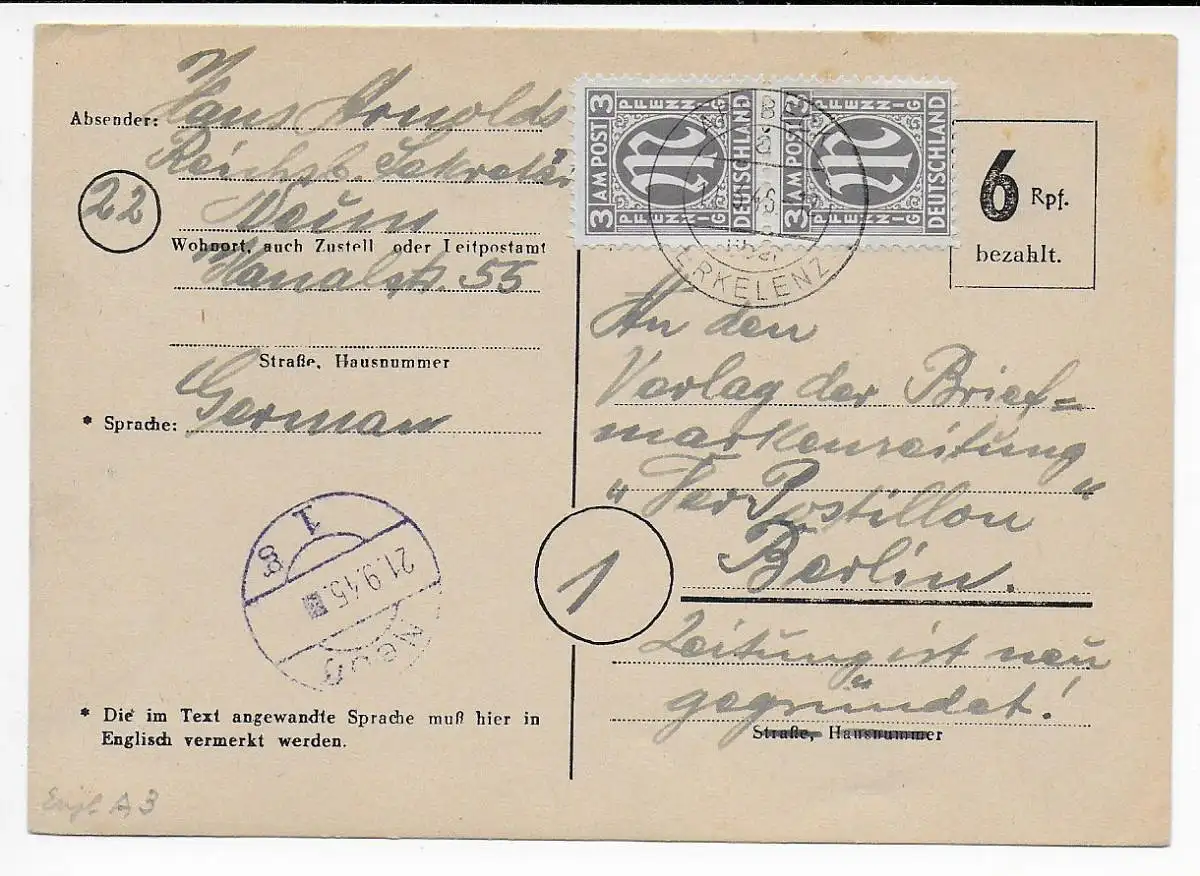 Absender: Hans Arnolds
Reichsb. Sekretär
22
Wohnort, auch Zustell oder Leitpostamt
Kanalstr. 55
Straße, Hausnummer
* Sprache: German
1 g
21.9.45.
* Die im Text angewandte Sprache muß hier in
Englisch vermerkt werden.
3 AM POST 3
PFENNIG
PFENNIG
DEUTSCHLAND
3 AM POST 3
PFENNIG
PFENNIG
DEUTSCHLAND
ERKELENZ
6 Rpf.
bezahlt.
An den
Verlag der Brief=
markenzeitung
"Der Postillon"
1
Berlin.
Zeitung ist neu
gegründet!
Straße, Hausnummer
A3